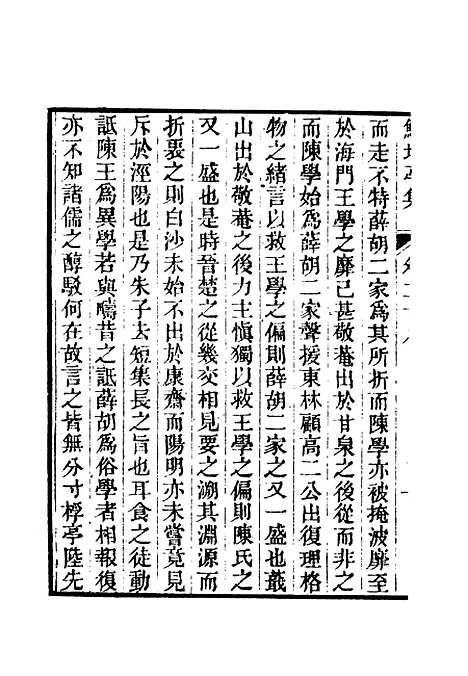 鮚埼亭集 卷二十八
而走不特薛胡二家爲其所折而陳學亦被掩波靡至
於海門王學之靡已甚敬菴出於甘泉之後從而非之
而陳學始爲薛胡二家聲援東林顧高二公出復理格
物之緒言以救王學之偏則薛胡二家之又一盛也蕺
山出於敬菴之後力主愼獨以救王學之偏則陳氏之
又一盛也是時晉楚之從幾交相見要之溯其淵源而
折衷之則白沙未始不出於康齋而陽明亦未嘗竟見
斥於涇陽也是乃朱子去短集長之旨也耳食之徒動
詆陳王爲異學若與疇昔之詆薛胡爲俗學者相報復
亦不知諸儒之醇駁何在故言之皆無分寸桴亭陸先